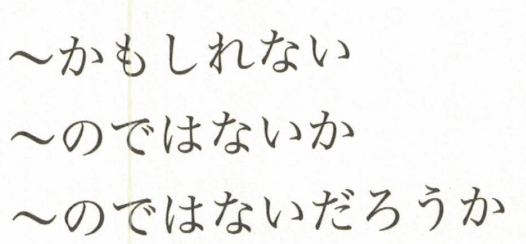 ～かもしれない
～のではないか
～のではないだろうか